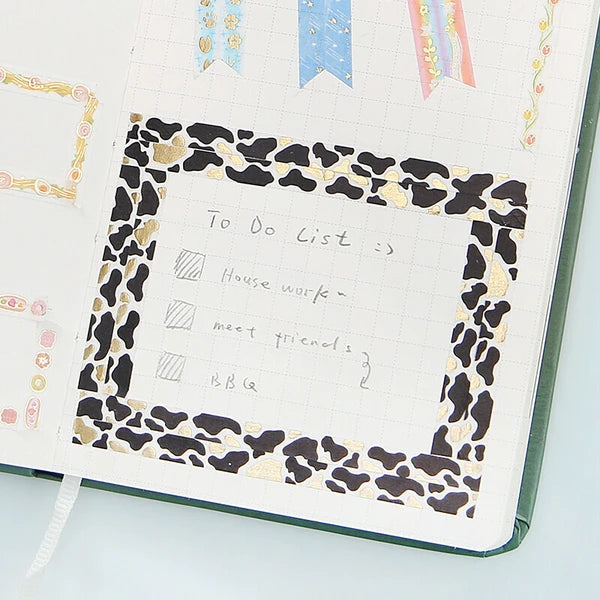 To Do List :)
House work~
meet friends
BBQ